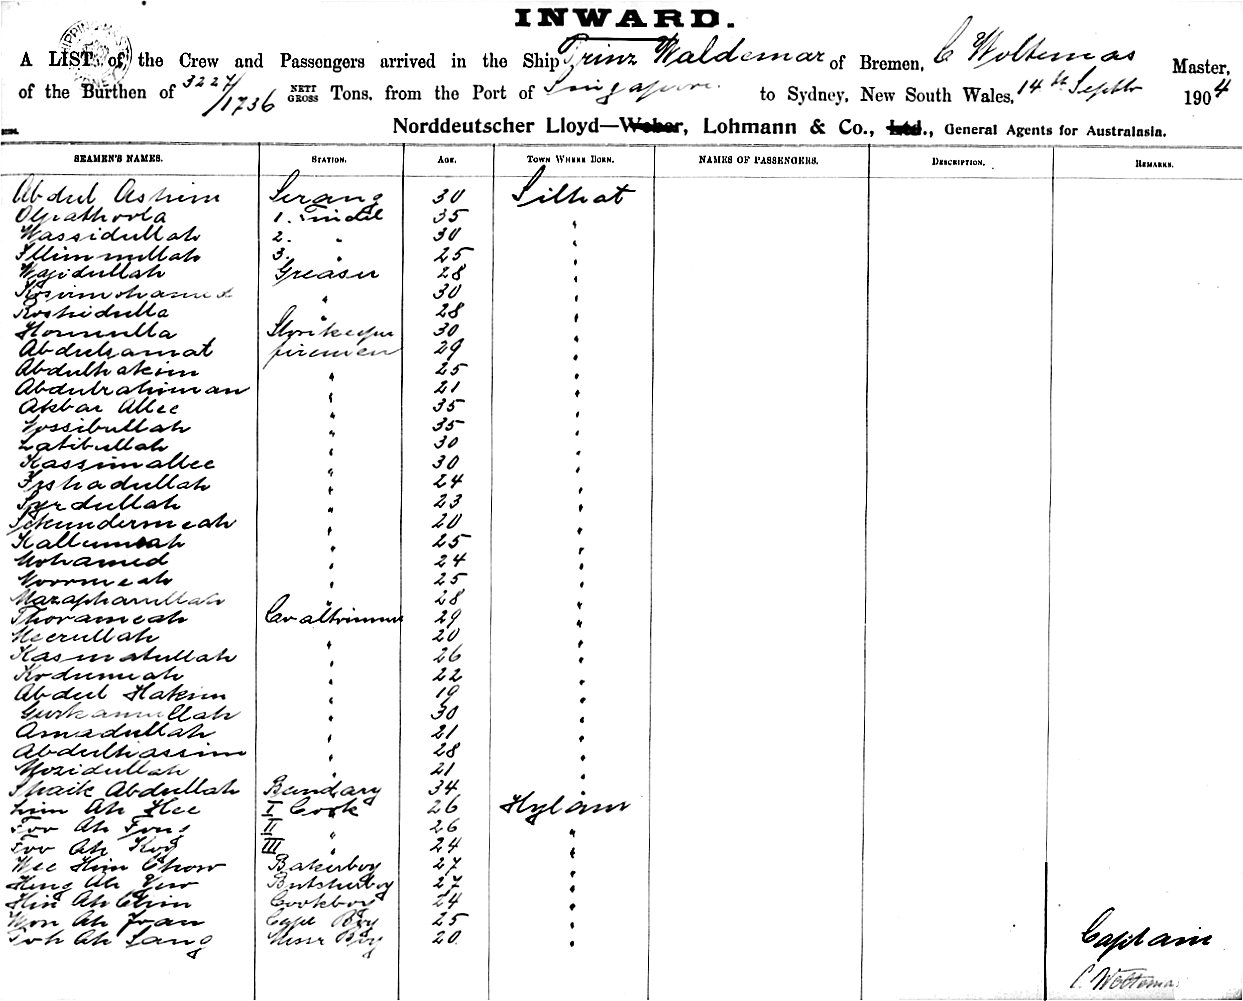 INWARD.
A LIST of the Crew and Passengers arrived in the Ship Prinz Waldemar of Bremen, C Woltemas Master,
of the Burthen of 3227/1736 NETT GROSS Tons, from the Port of Singapore to Sydney, New South Wales, 14th Septbr 1904
Norddeutscher Lloyd—Weber, Lohmann & Co., Ltd., General Agents for Australasia.
SEAMEN'S NAMES. STATION. AGE. TOWN WHERE BORN. NAMES OF PASSENGERS. DESCRIPTION. REMARKS.
Abdul Ashim Serang 30 Silhat
1. Tindel 35 "
Wassidullah 2. " 30 "
3. " 25 "
Wajidullah Greaser 28 "
" 30 "
Roshidulla 28 "
Storekeeper 30 "
Abdulsamat firemen 29 "
Abdulhakim " 25 "
Abdulrahiman " 21 "
Akbar Allee " 35 "
Vossibullah " 35 "
Latibullah " 30 "
Kassimallee " 30 "
Irshadullah " 24 "
Syrdullah " 23 "
Sekundermeah " 20 "
Kallumeah " 25 "
Mohamed " 24 "
Noormeah " 25 "
Mazaphanullah " 28 "
Thorameah 29 "
Meerullah " 20 "
Kasmatullah " 26 "
Kodumeah " 22 "
Abdul Hakim " 19 "
" 30 "
Amadullah " 21 "
Abdulhassim " 28 "
Mozidullah " 21 "
Shaik Abdullah Bandary 34 "
Lim Ah Hee I Cook 26 Hylam
Foo Ah Fong II " 26 "
Foo Ah Koy III " 24 "
Wee Him Chow Bakerboy 27 "
Hing Ah Yew Butsherboy 27 "
Hin Ah Chin Cookboy 24 "
Won Ah Joan Boy 25 "
Toh Ah Sang Messr Boy 20 "
Captain
C. Woltemas